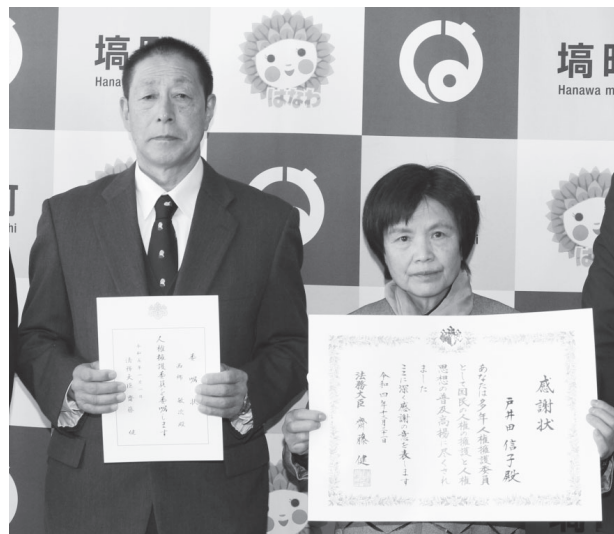 塙町
Hanawa
はなわ
塙町
Hanawa m
町
hi
はなわ
委嘱状
殿
人権擁護委員を委嘱します
法務大臣 齋藤 健
感謝状
戸井田 信子 殿
あなたは多年人権擁護委員
として国民の人権の擁護と人権
思想の普及高揚に尽くされ
ました
ここに深く感謝の意を表します
法務大臣 齋藤 健